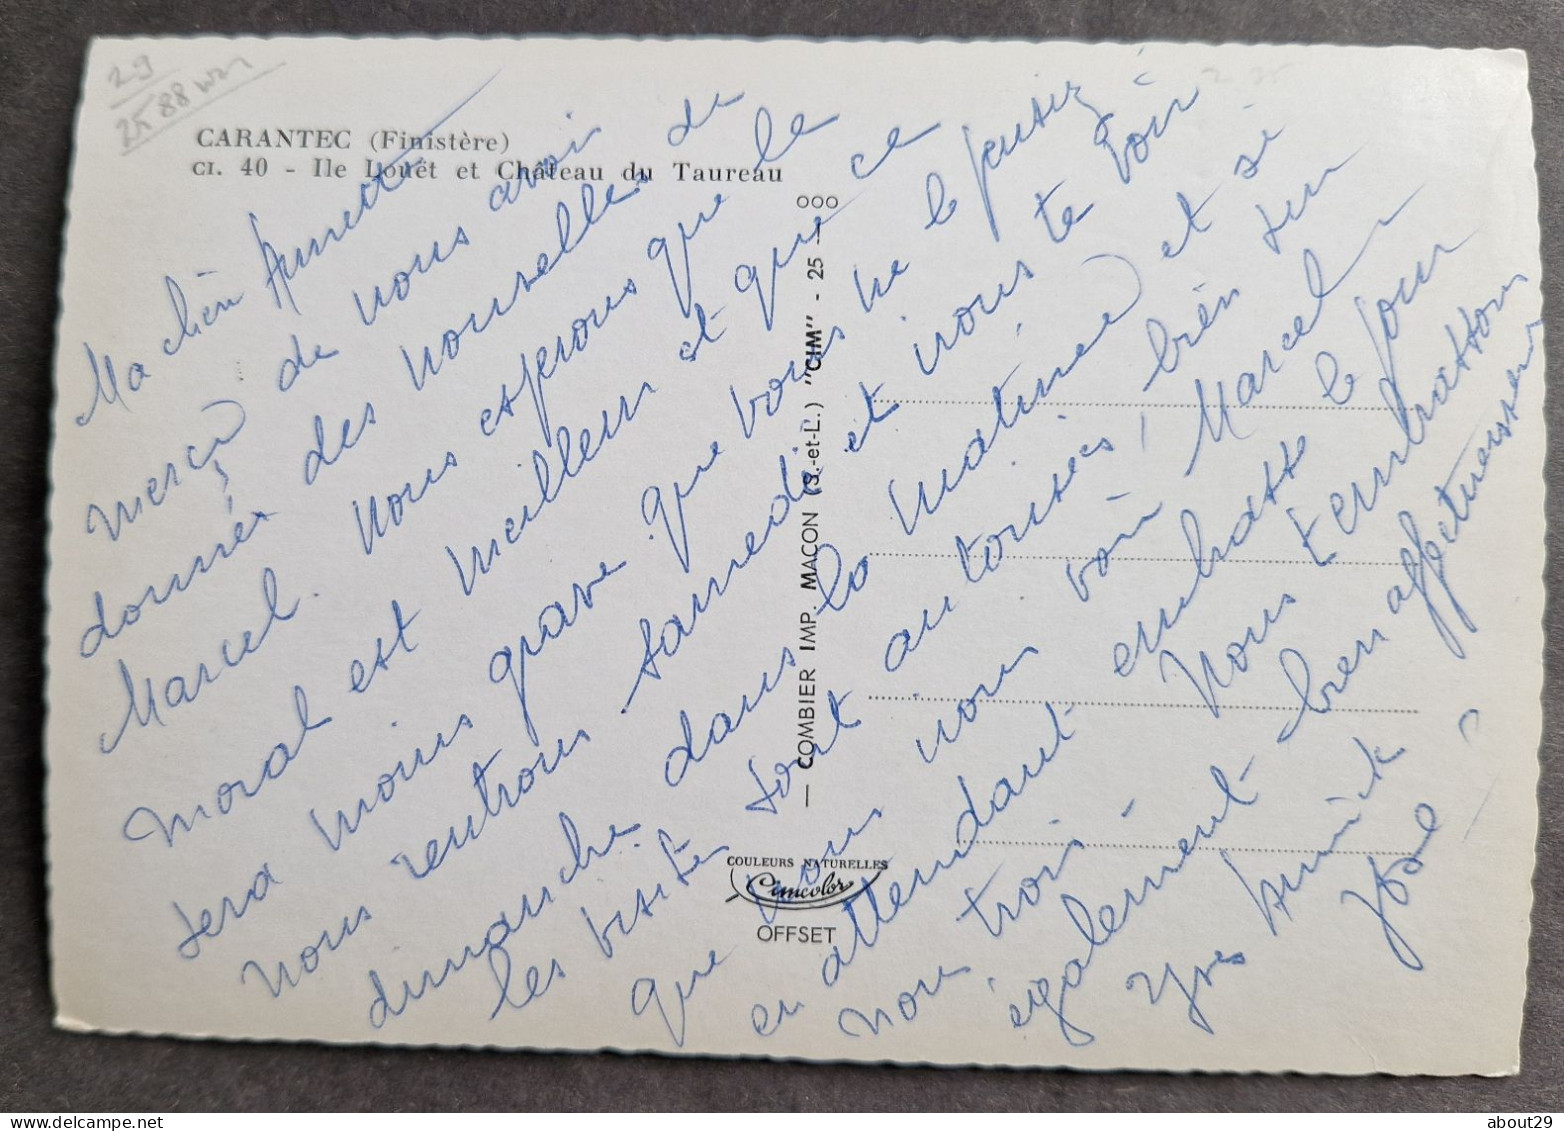 29
2588
CARANTEC (Finistère)
CI. 40 - Ile Louët et Château du Taureau
Ma chère Annette
Merci de nous avoir
données des nouvelles de
Marcel. Nous espérons que le
moral est meilleur et que ce
sera moins grave que vous ne le pensiez
Nous rentrons samedi et irons te voir
dimanche dans la matinée et si
les visites sont autorisées, bien sur
que nous irons voir Marcel
en attendant embrasse le pour
nous trois. Nous t'embrassons
également bien affectueusement
Yves Annick
José
— COMBIER IMP. MACON (S.-et-L.) "CIM" - 25 — 000
COULEURS NATURELLES
Cimcolor
OFFSET
about29